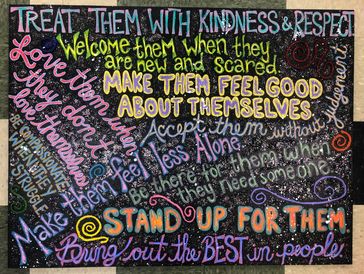 TREAT THEM WITH KINDNESS & RESPECT
Welcome them when they
are new and scared.
MAKE THEM FEEL GOOD
ABOUT THEMSELVES
Love them when
they don't
love themselves.
Accept them without judgement
BE COMPASSIONATE
WHEN THEY
STRUGGLE
Make them feel less Alone
Be there for them when
they need someone.
STAND UP FOR THEM
Bring out the BEST in people